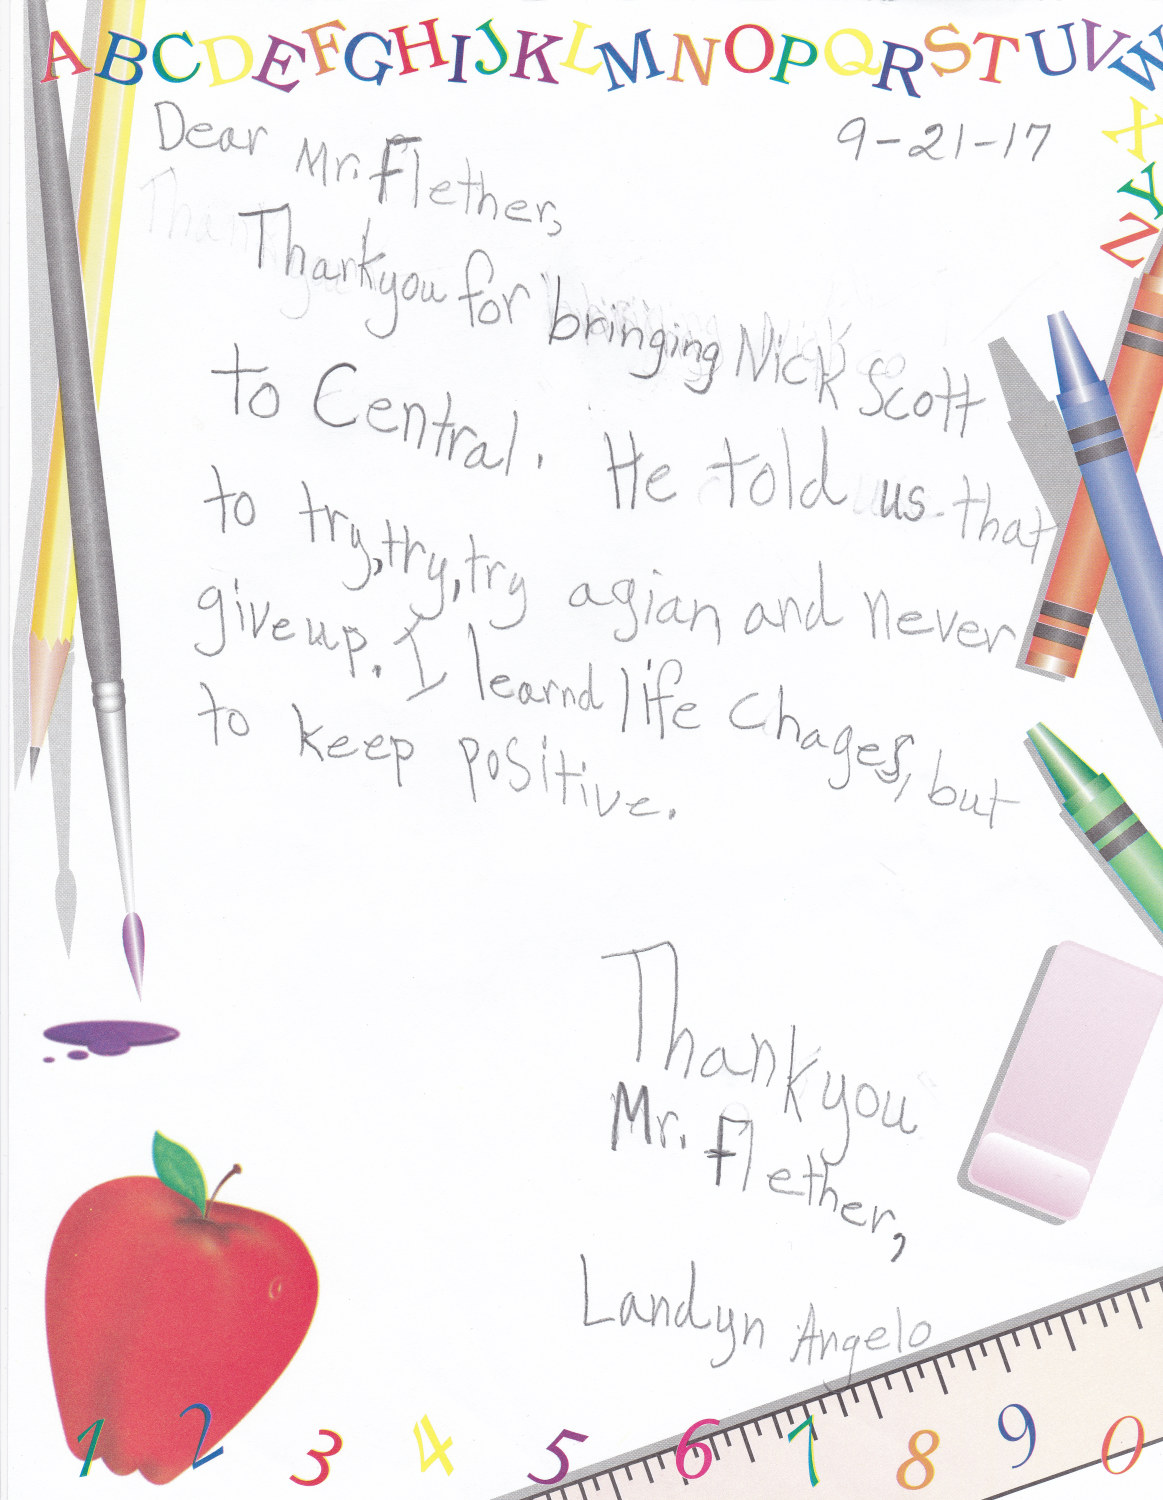 ABCDEFGHIJKLMNOPQRSTUVW
X
Y
Z
9-21-17
Dear Mr. Flether,
Thankyou for bringing Nick Scott
to Central. He told us that
to try, try, try agian and never
give up. I learnd life chages, but
to keep positive.
Thank you
Mr. Flether,
Landyn Angelo
1 2 3 4 5 6 7 8 9 0